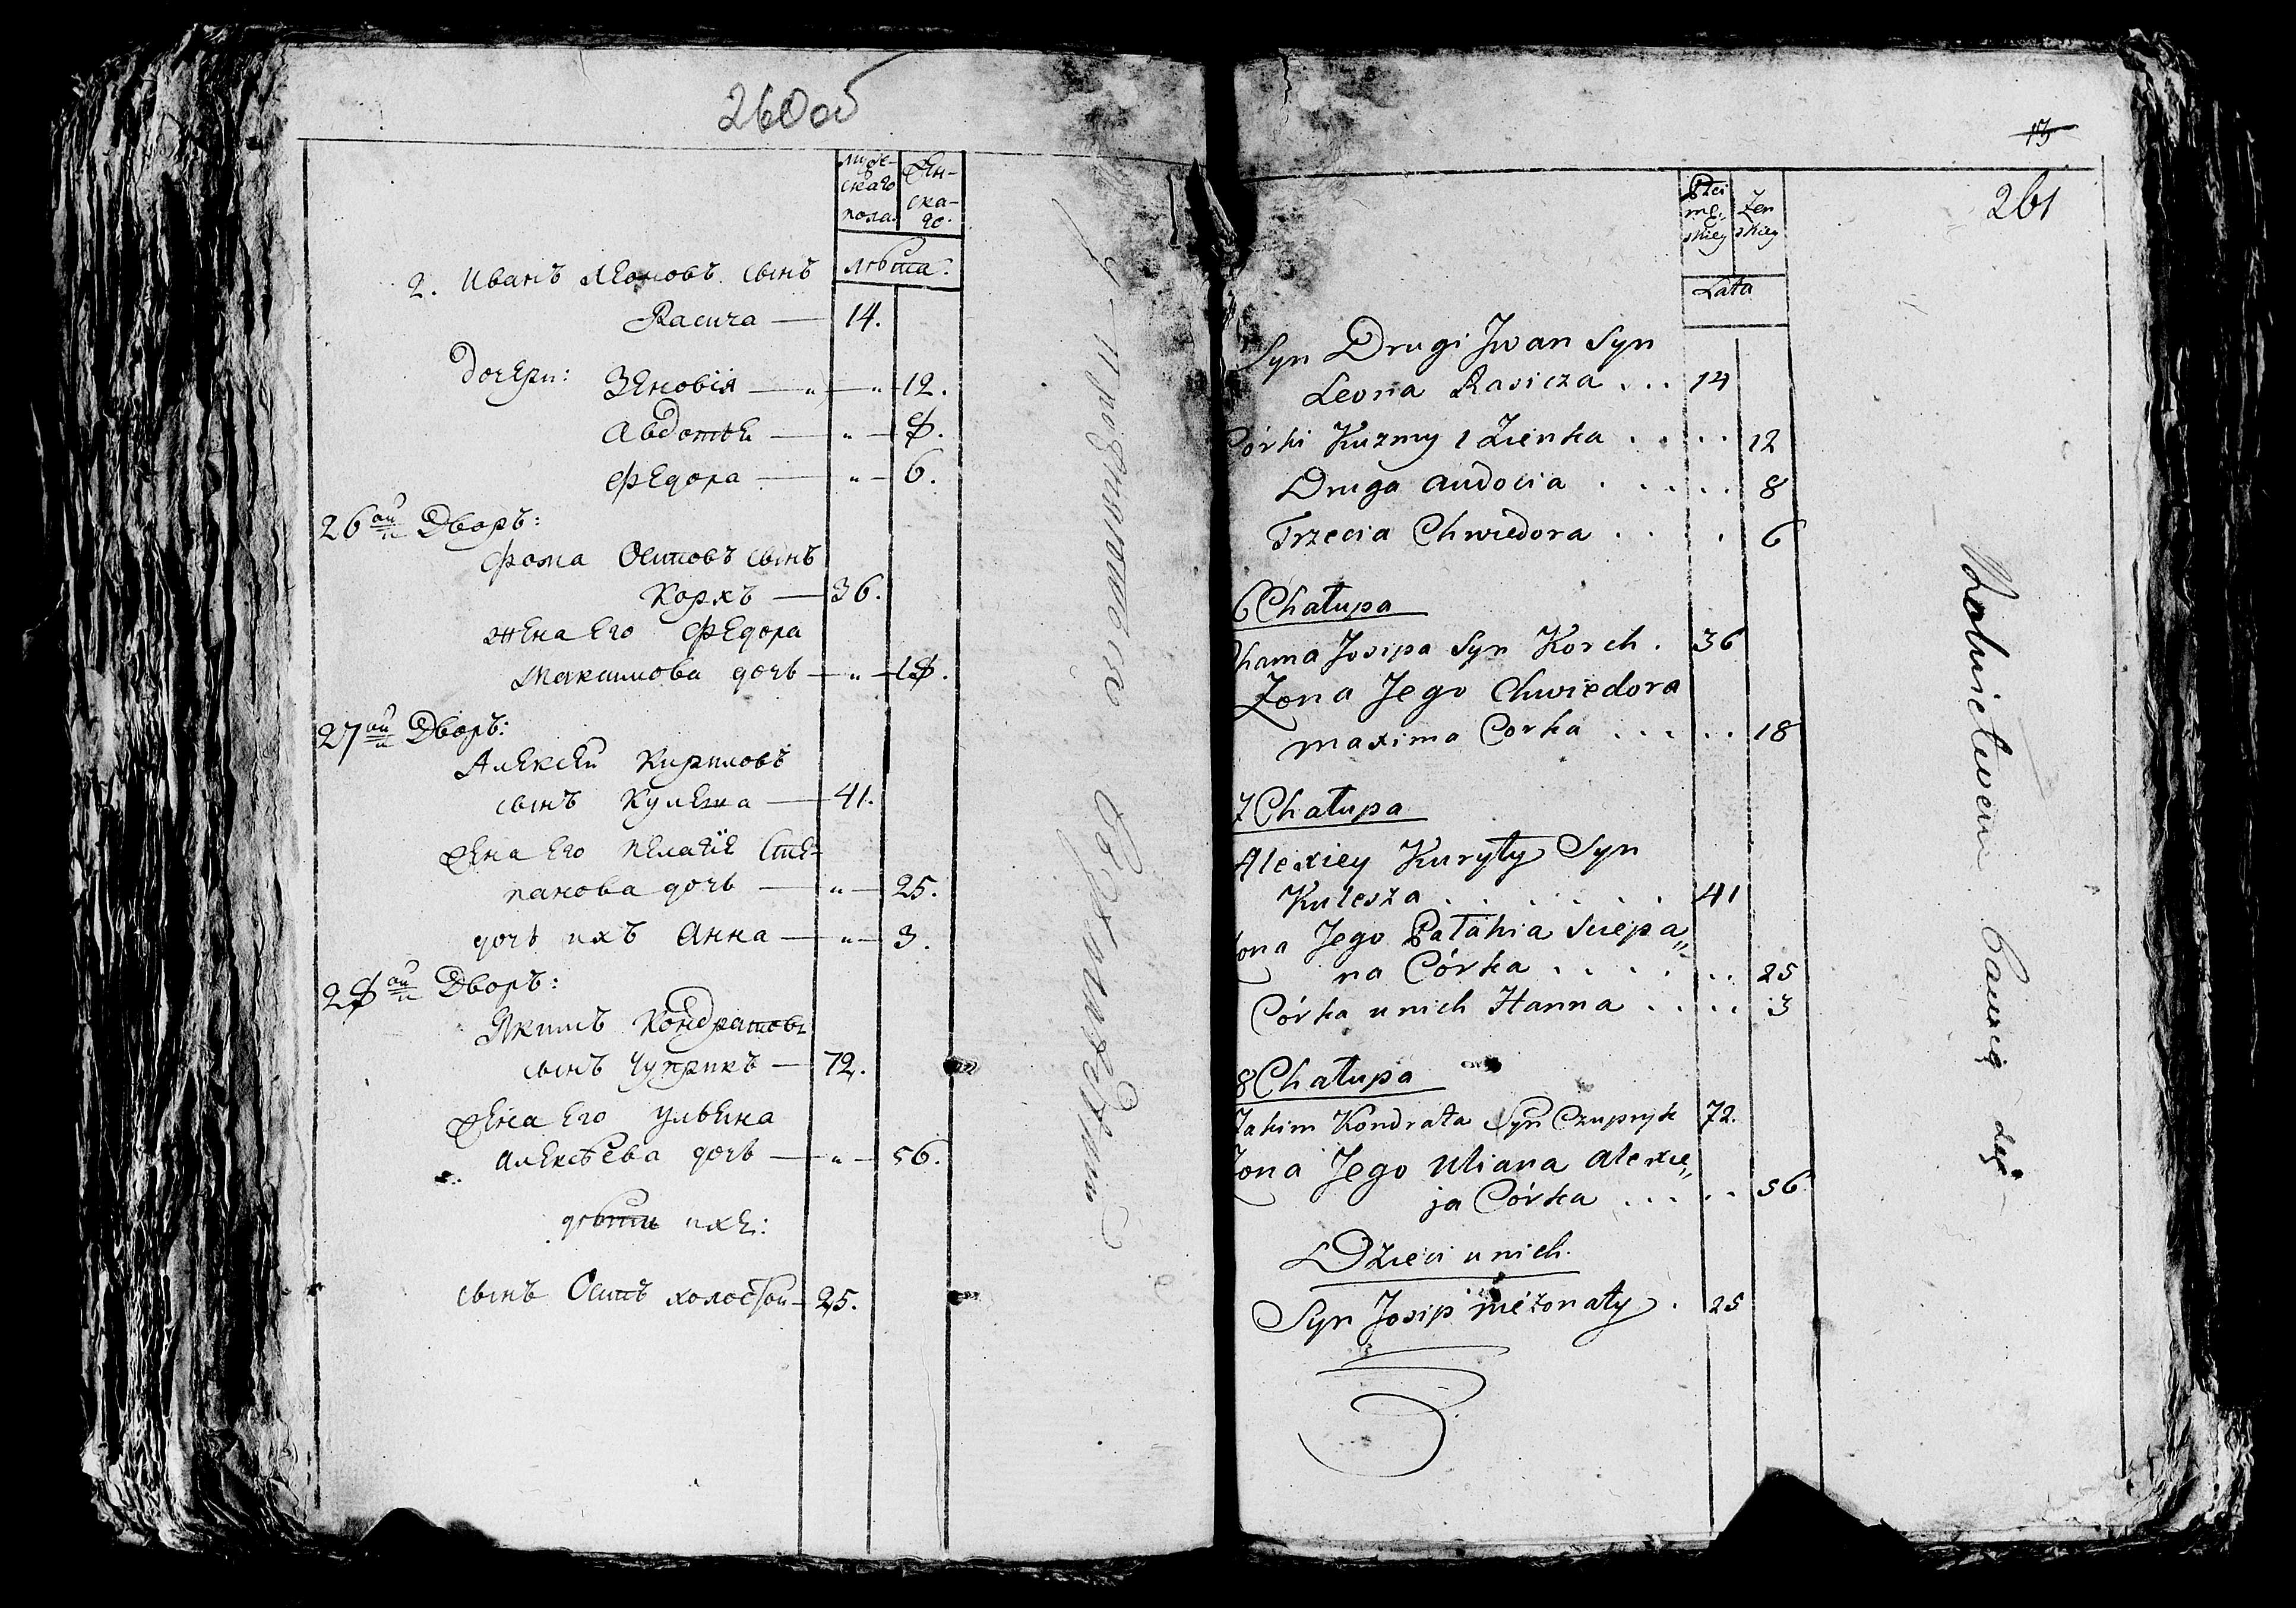 260об
муже-
скаго
пола.
жен-
ска-
го.
лѣта.
2. Иванъ Леоновъ сынъ
Расича — 14.
дочери: Зеновія — „ — „ — 12.
Авдотѣи — „ — 8.
Федора — „ — 6.
26ой Дворъ:
Фома Осиповъ сынъ
Корхъ — 36.
жена Его Федора
Максимова дочь — „ — 18.
27ой Дворъ:
Алексей Кириловъ
сынъ Кулеша — 41.
жена Его Пелагіе Сте-
панова дочь — „ — 25.
дочь ихъ Анна — „ — 3.
28ой Дворъ:
Якимъ Кондратовъ
сынъ Чуприкъ — 72.
жена Его Ульена
Алексѣева дочь — „ — 56.
дѣти ихе:
сынъ Осипъ холостой — 25.
13
261
Płci
mę-
skiey
Żen
skiey
Lata
Syn Drugi Jwan Syn
Leona Rasicza . . . 14
Córki Kuzmy 1 Zienka . . . . 12
Druga audocia . . . . . 8
Trzecia Chwiedora . . . 6
6 Chałupa
Chama Josipa Syn Korch . 36
Zona Jego Chwiedora
maxima Corka . . . . . 18
7 Chałupa
Alexiey Kuryły Syn
Kulesza . . . . . . . 41
Zona Jego Pałahia Sciepa„
na Córka . . . . . . . 25
Córka u nich Hanna . . . . 3
8 Chałupa
Jakim Kondrata Syn Czupryk 72.
Zona Jego Uliana alexie„
ja Córka . . . . . 56
Dzieci u nich.
Syn Josip nieżonaty . 25